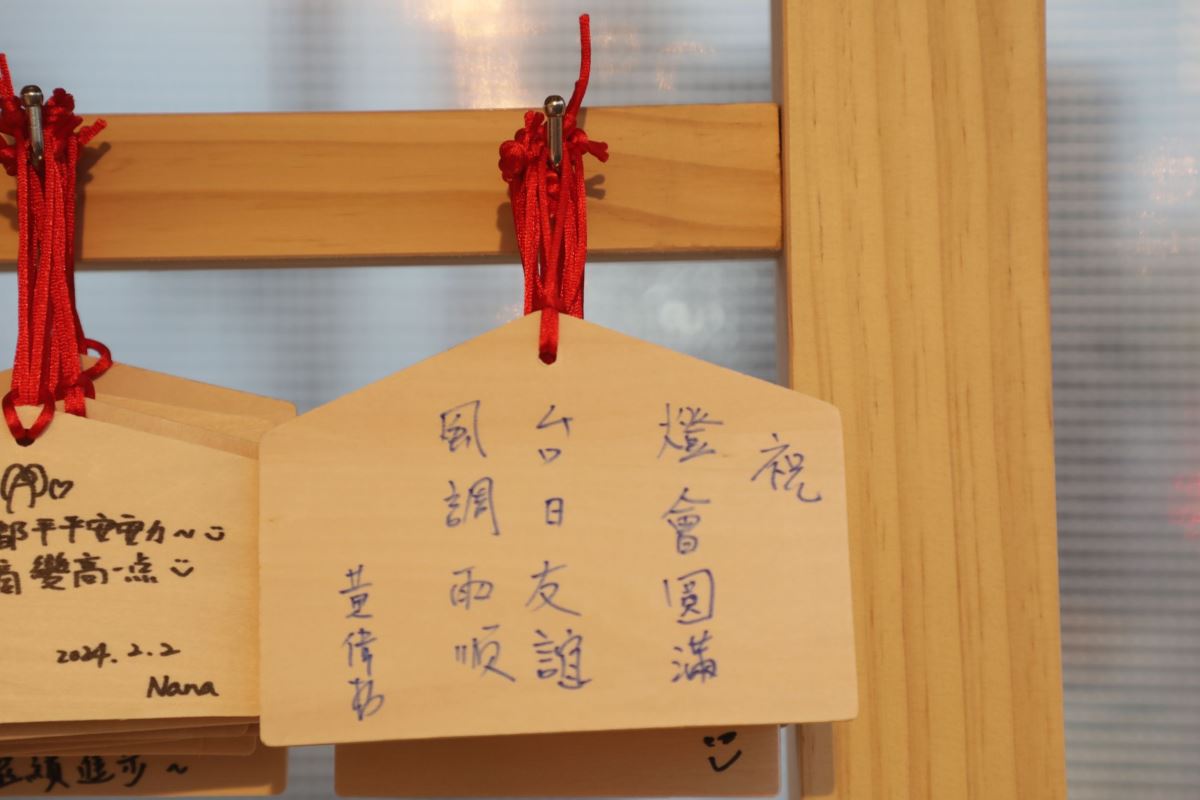 祝
燈會圓滿
台日友誼
風調雨順
黃偉
都平平安安
變高一点
2024.2.2
Nana
進步~